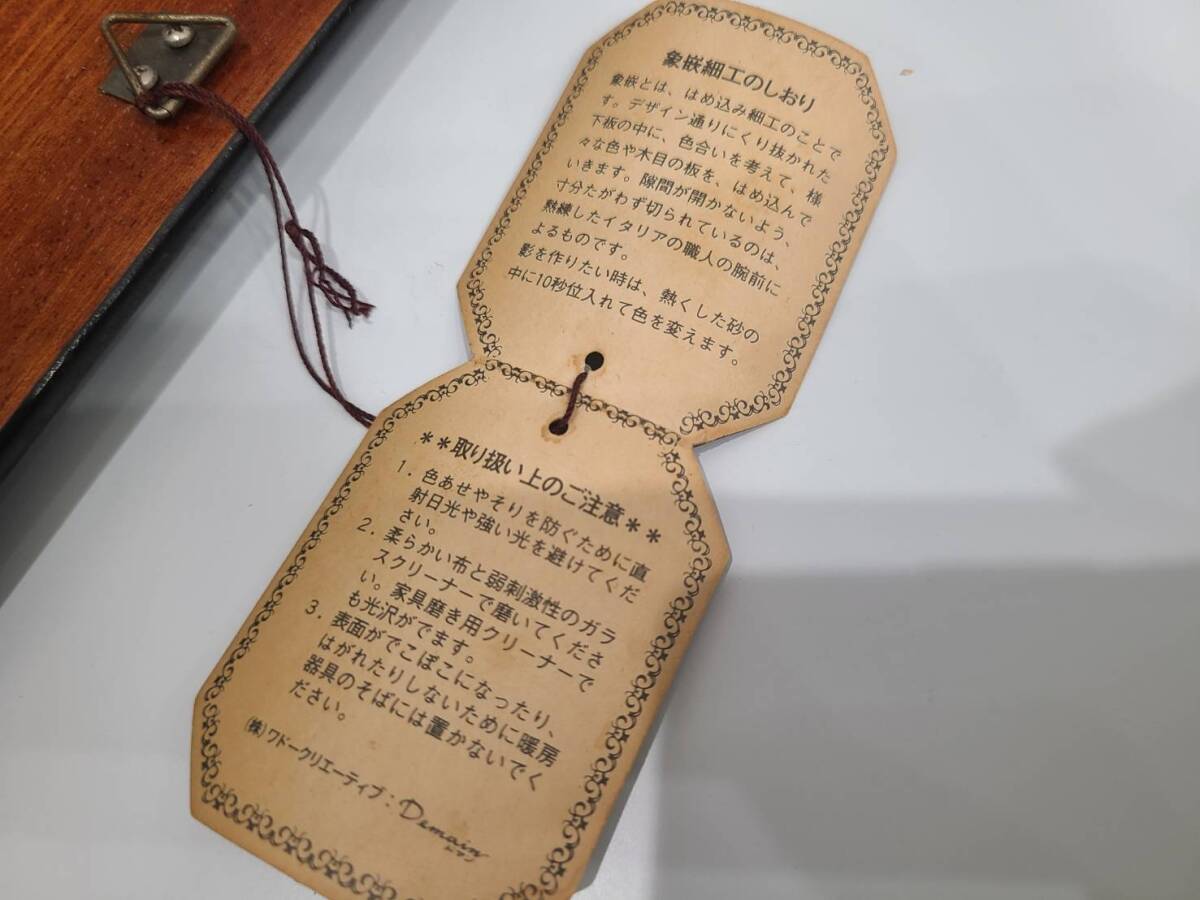 象嵌細工のしおり
象嵌とは、はめ込み細工のことで
す。デザイン通りにくり抜かれた
下板の中に、色合いを考えて、様
々な色や木目の板を、はめ込んで
いきます。隙間が開かないよう、
寸分たがわず切られているのは、
熟練したイタリアの職人の腕前に
よるものです。
影を作りたい時は、熱くした砂の
中に10秒位入れて色を変えます。
**取り扱い上のご注意**
1. 色あせやそりを防ぐために直
射日光や強い光を避けてくだ
さい。
2. 柔らかい布と弱刺激性のガラ
スクリーナーで磨いてくださ
い。家具磨き用クリーナーで
も光沢がでます。
3. 表面がでこぼこになったり、
はがれたりしないために暖房
器具のそばには置かないでく
ださい。
(株)ワドークリエーティブ：Demain
ドマン